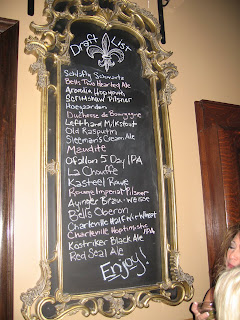 Draft List
Schlafly Schwartz
Bells Two Hearted Ale
Arcadia Hopmouth
Scrimshaw Pilsner
Hoegaarden
Duchesse de Bourgogne
Lefthand Milkstout
Old Rasputin
Sleeman's Cream Ale
Maudite
Ofallon 5 Day IPA
La Chouffe
Kasteel Rouge
Rouge Imperial Pilsner
Ayinger Brau-Weisse
Bell's Oberon
Charleville Half Wit Wheat
Charleville Hoptimistic IPA
Kostriker Black Ale
Red Seal Ale
Enjoy!